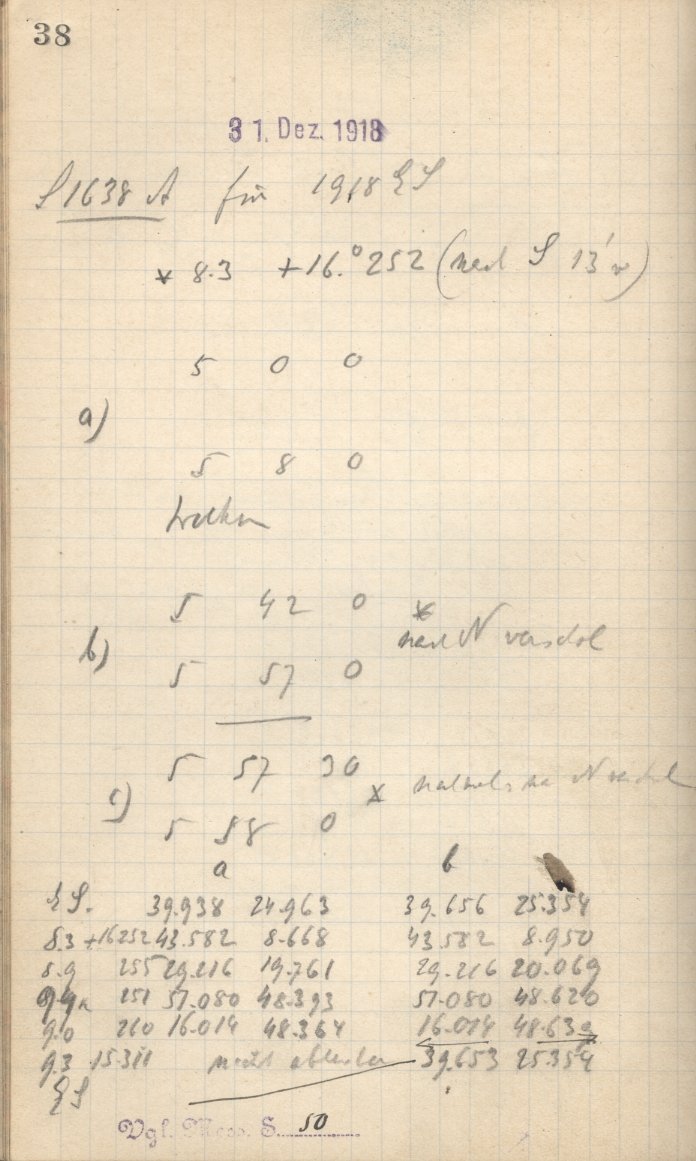 38
31. Dez. 1918
S 1638 A für 1918 ES
* 8.3 +16.°252 (nach S 13'
5 0 0
a)
5 8 0
Wolken
5 42 0 *
b) nach N
5 57 0
5 57 30
c) * nach N
5 58 0
a b
39.938 24.963 39.656 25.354
8.3 +16252 43.582 8.668 43.582 8.950
8.9 255 29.216 19.761 29.216 20.069
251 57.080 48.393 57.080 48.620
9.0 260 16.014 48.364 16.014
9.3 15311 nicht ablesbar 39.653 25.354
Vgl. Mess. S. 50